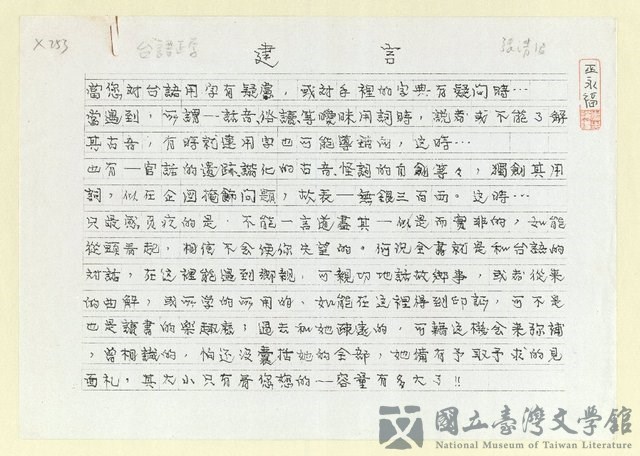 X253
台語正字
建言
張洪
巫永福
當您對台語用字有疑慮，或對手裡的字典有疑問時…
當遇到，所謂一話音、俗讀等曖昧用詞時，說者或不能了解
其古音，有時就連用字也可能導誤，這時…
也有一官話的遺跡，變化的古音、怪詞的自創等々，獨創其用
詞，似在企圖掩飾問題，故表一無銀三百両。這時…
只最感頁疚的是，不能一言道盡其一似是而實非的，如能
從頭看起，相信不会使你失望的。何況全書就是和台語的
對話，在這裡能遇到鄉親，可親切地話故鄉事，或者從來
的曲解，或所学的所用的、如能在這裡得到印証，可不是
也是讀書的樂趣麼；過去和她疎遠的，可藉這機会來弥補
，曾相識的，怕还沒囊括她的全部，她備有予取予求的見
面礼，其大小只有看您您的一容量有多大了!!
國立臺灣文學館
National Museum of Taiwan Literature